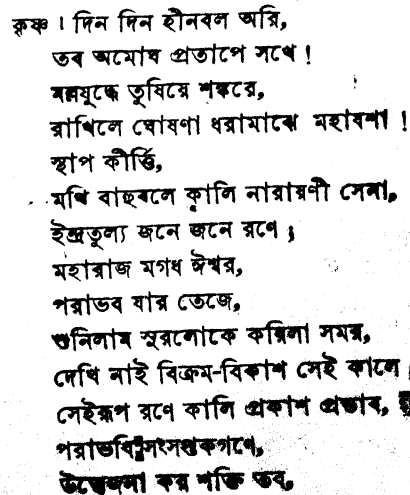 কৃষ্ণ । দিন দিন হীনবল অরি,
তব অমোঘ প্রতাপে সখে !
মল্লযুদ্ধে তুষিয়ে শঙ্করে,
রাখিলে ঘোষণা ধরামাঝে মহাযশা !
স্থাপ কীর্ত্তি,
মথি বাহুবলে কালি নারায়ণী সেনা,
ইন্দ্রতুল্য জনে জনে রণে ;
মহারাজ মগধ ঈশ্বর,
পরাভব যার তেজে,
শুনিলাম সুরলোকে করিলা সমর,
দেখি নাই বিক্রম-বিকাশ সেই কালে ;
সেইরূপ রণে কালি প্রকাশ প্রভাব,
পরাভবি সংসপ্তকগণে,
উত্তেজনা কর শক্তি তব,